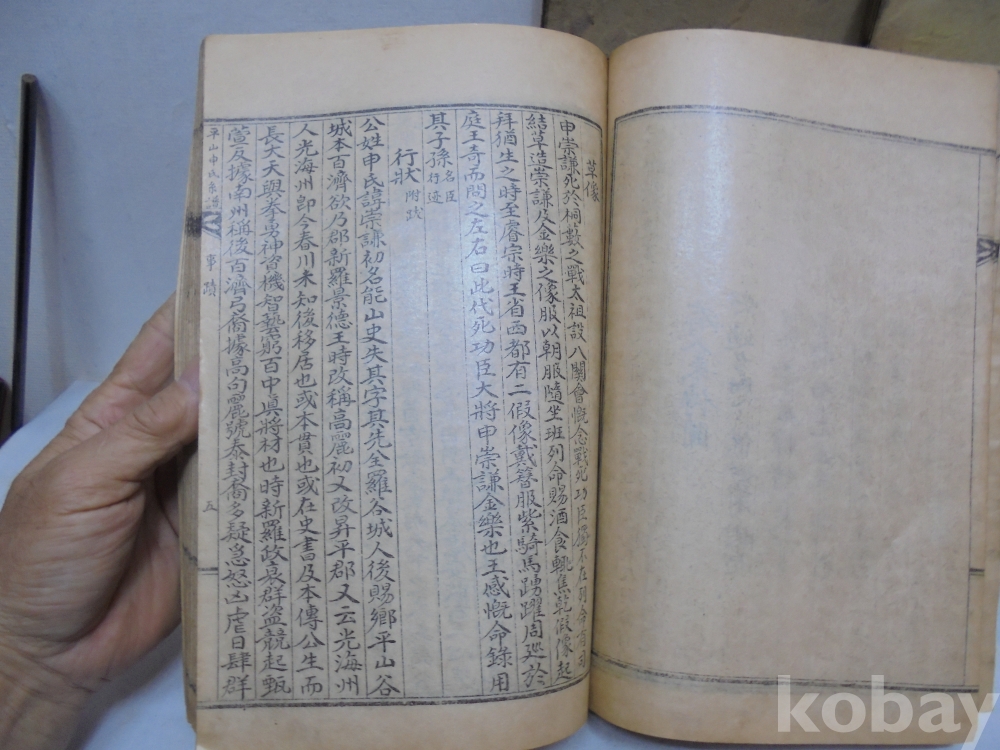 草像
申崇謙死於桐藪之戰太祖設八關會慨念戰死功臣獨不在列命有司
結草造崇謙及金樂之像服以朝服隨坐班列命賜酒食輒焦乾假像起
拜猶生之時至睿宗時王省西都有二假像戴簪服紫騎馬踴躍周巡於
庭王奇而問之左右曰此代死功臣大將申崇謙金樂也王感慨命錄用
其子孫名臣行迹
行狀附跋
公姓申氏諱崇謙初名能山史失其字其先全羅谷城人後賜鄉平山谷
城本百濟欲乃郡新羅景德王時改稱高麗初又改昇平郡又云光海州
人光海州即今春川未知後移居也或本貫也或在史書及本傳公生而
長大天與拳勇神資機智藝窮百中眞將材也時新羅政衰群盜競起甄
萱反據南州稱後百濟弓裔據高句麗號泰封裔多疑急怒凶虐日肆群
平山申氏系譜
事蹟
五
kobay